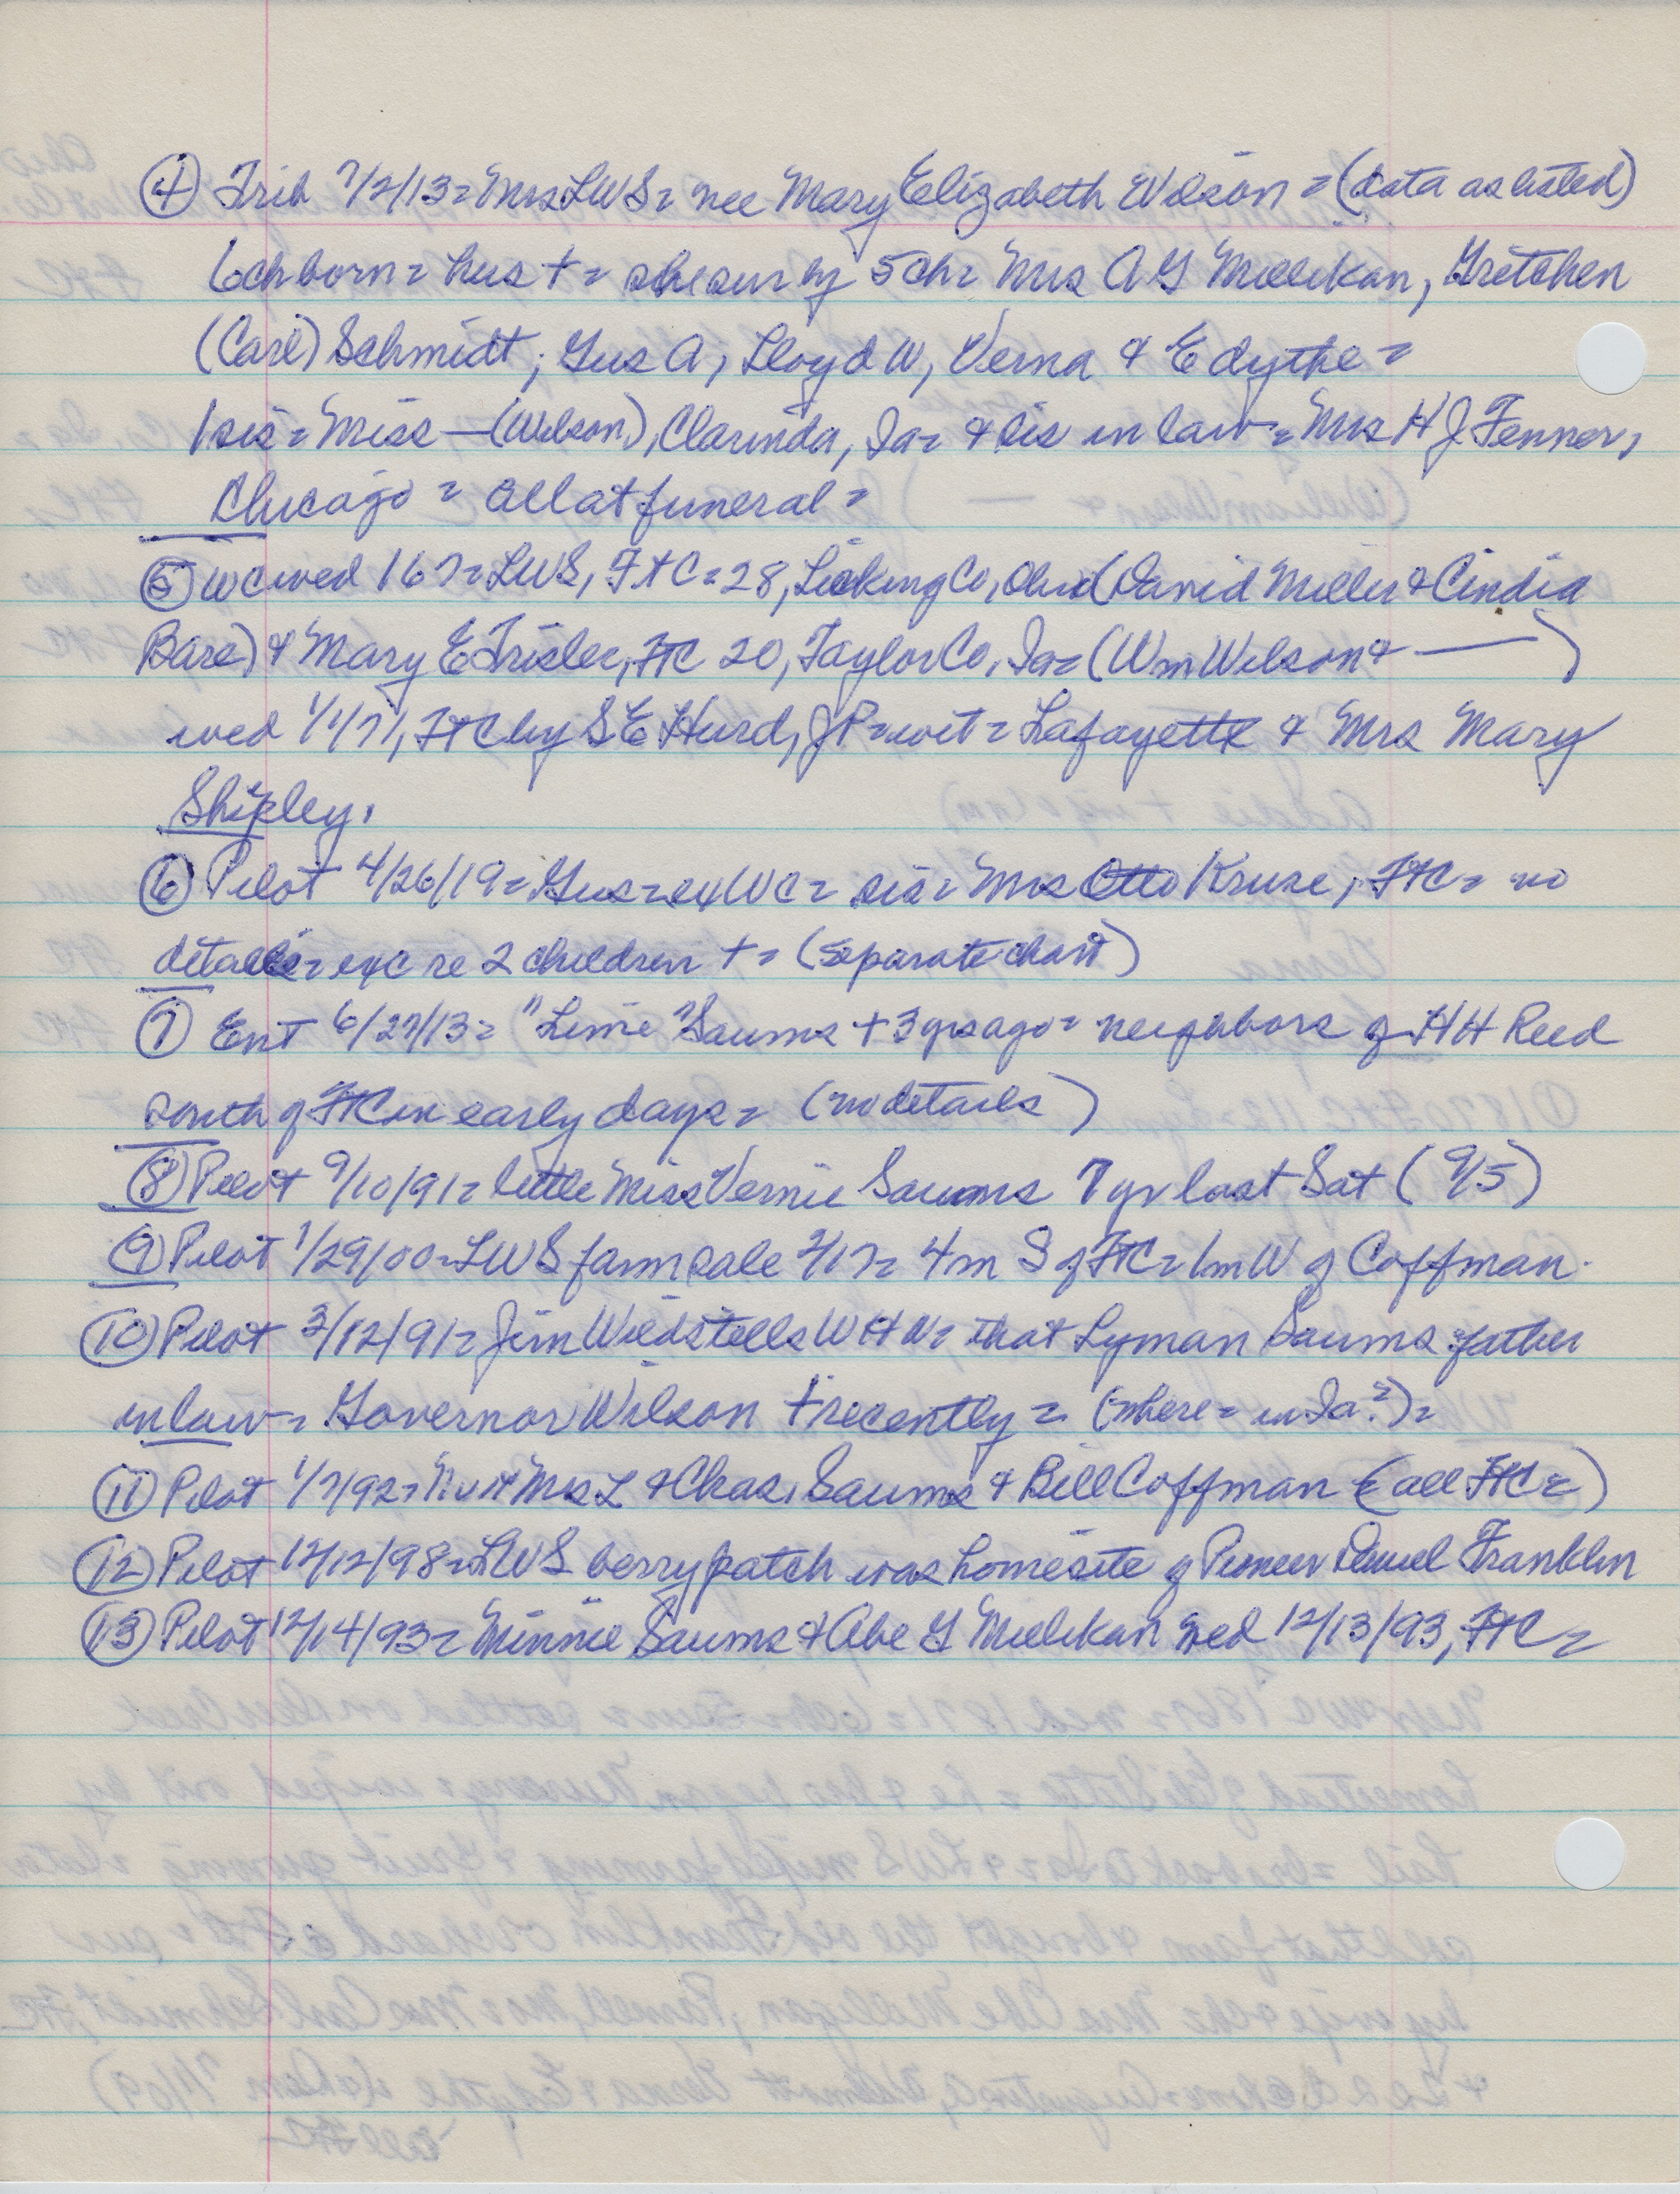 ④ Trib 7/2/13 = Mrs LWS = nee Mary Elizabeth Wilson = (data as listed)
6ch born = hus † = she sur by 5ch = Mrs A G Millikan, Gretchen
(Carl) Schmidt; Gus A, Lloyd W, Verna & Edythe =
1 sis = Miss — (Wilson), Clarinda, Ia = & sis in law = Mrs H J Fenner,
Chicago = all at funeral =
⑤ WC wed 167 = LWS, FtC = 28, Licking Co, Ohio (David Miller & Cindia
Bare) & Mary E Trisler, FtC 20, Taylor Co, Ia = (Wm Wilson & — )
wed 1/1/71, FtC by S E Hurd, JP = wit = Lafayette & Mrs Mary
Shipley.
⑥ Pilot 4/26/19 = Gus = ex WC = sis = Mrs Otto Kruse, FtC = no
details = exc re 2 children † = (separate chart)
⑦ Ent 6/27/13 = "Lime" Saums † 3 yrs ago = neighbors of HH Reed
south of FtC in early days = (no details)
⑧ Pilot 9/10/91 = little Miss Vernie Saums 7 yr last Sat (9/5)
⑨ Pilot 1/29/00 = LWS farm sale 2/17 = 4m S of FtC = 1m W of Coffman.
⑩ Pilot 3/12/91 = Jim Wild tells WHW = that Lyman Saums father
in law = Governor Wilson † recently = (where = in Ia?) =
⑪ Pilot 1/7/92 = Mrs L & Chas. Saums & Bill Coffman (all FtC =)
⑫ Pilot 12/12/98 = LWS berry patch was homesite of Pioneer Daniel Franklin
⑬ Pilot 12/14/93 = Minnie Saums & Abe G Millikan wed 12/13/93, FtC =